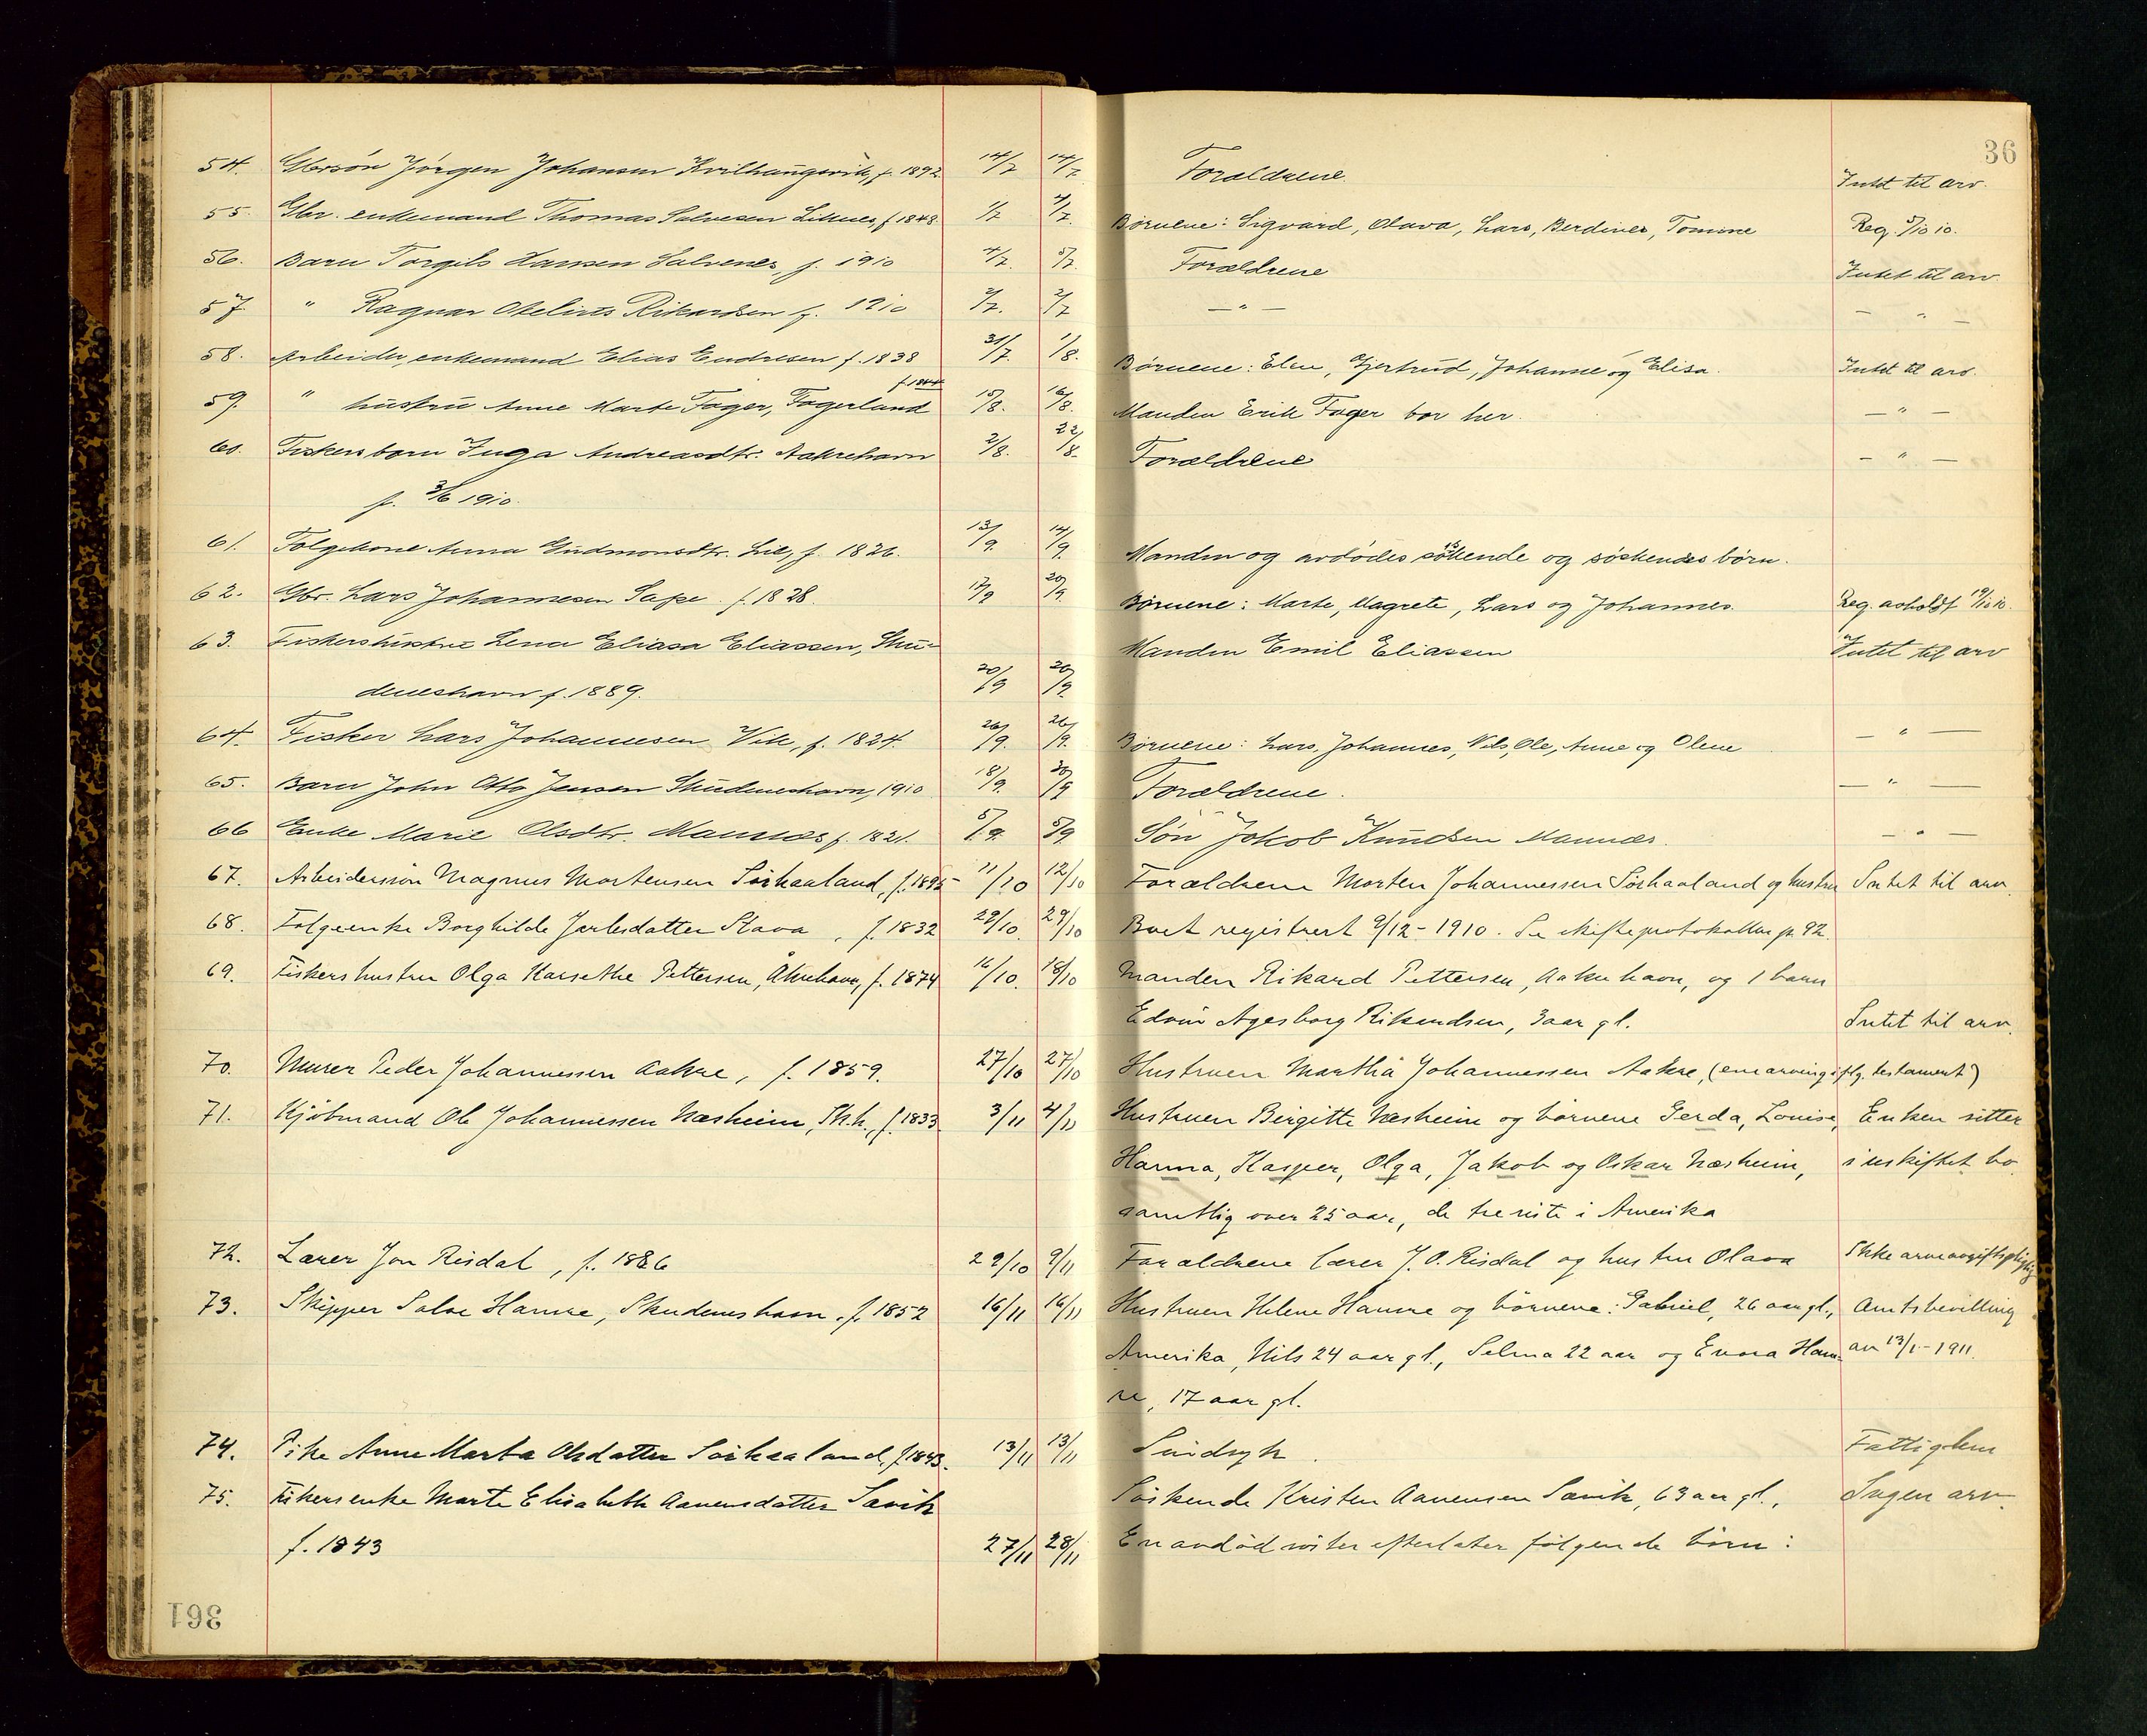 36
54. Gbrsøn Jörgen Johansen Kvilhaugsvik, f. 1892 14/7 14/7 Forældrene. Intet til arv.
55. Gbr. enkemand Thomas Salvesen Liknes, f 1848. 1/7 4/7. Børnene: Sigvard, Olava, Lars, Berdines, Tomine Reg. 5/10 10.
56. Barn Torgils Hansen Salvenes, f. 1910 4/7. 5/7. Forældrene Intet til arv.
57. " Ragnar Rikardsen f. 1910 2/7. 2/7 — " — — " —
58. Arbeider, enkemand Elias Endresen f. 1838 31/7. 1/8. Børnene: Elen, Gjertrud, Johanne og Elisa. Intet til arv.
f. 1844
59. " hustru Anne Marte Fager, Fagerland 15/8. 16/8. Manden Erik Fager bor her. — " —
60. Fiskersbarn Inga Andreasdtr. Aakrehavn 2/8. 22/8. Forældrene — " —
f. 3/6 1910.
61. Følgekone Anna Gudmonsdtr. Lie, f. 1826. 13/9. 14/9. Manden og avdødes søskende og søskendes børn.
62. Gbr. Lars Johannesen Sape. f. 1828. 17/9 20/9. Børnene: Marte, Magrete, Lars og Johannes. Reg. avholdt 19/10 10.
63. Fiskershustru Lena Eliasa Eliassen, Sku- Manden Emil Eliassen Intet til arv
deneshavn f. 1889. 20/9 20/9
64. Fisker Lars Johannesen Vik, f. 1824. 26/9. 26/9. Børnene: Lars, Johannes, Nils, Ole, Anne og Olene — " —
65. Barn John Otto Jensen Skudeneshavn, 1910 18/9. 30/9 Forældrene. — " —
66 Enke Marie Olsdtr. Mannes f. 1821. 5/9. 5/9 Søn Jakob Knudsen Mannes. — " —
67. Arbeidersøn Magnus Mortensen Sørhaaland, f. 1895 11/10 12/10 Forældrene Morten Johannessen Sørhaaland og hustru Intet til arv.
68. Følgeenke Borghilde Jarlesdatter Stava, f. 1832 29/10. 29/10 Boet registrert 9/12 - 1910. Se skifteprotokollen p. 92.
69. Fiskershustru Olga Karsethe Pettersen, Åkrehavn, f. 1874 16/10. 18/10 Manden Rikard Pettersen, Aakrehavn, og 1 barn
Edvin Agesborg Rikardsen, 3 aar gl. Intet til arv.
70. Murer Peder Johannessen Aakre, f. 1859. 27/10 27/10 Hustruen Martha Johannessen Aakre, (enearving iflg. testament)
71. Kjøbmand Ole Johannessen Næsheim, Sk.h., f. 1833 3/11 4/11 Hustruen Birgitte Næsheim og børnene Gerda, Louise, Enken sitter
Hanna, Kasper, Olga, Jakob og Oskar Næsheim, i uskiftet bo.
samtlig over 25 aar, de tre siste i Amerika
72. Lærer Jon Risdal, f. 1886 29/10 9/11 Forældrene lærer J. O. Risdal og hustru Olava Ikke arveavgiftspligtig
73. Skipper Salve Hamre, Skudeneshavn, f. 1852 16/11 16/11 Hustruen Helene Hamre og børnene: Gabriel, 26 aar gl., Amtsbevilling
Amerika, Nils 24 aar gl., Selma 22 aar og Enora Ham- av 13/1 - 1911.
re, 17 aar gl.
74. Pike Anne Marta Olsdatter Sørhaaland, f 1843. 13/11 13/11 Sindsyk. Fattiglem
75. Fiskersenke Marte Elisabeth Aanensdatter Sævik Søskende Kristen Aanensen Sævik, 63 aar gl., Ingen arv.
f. 1843 27/11 28/11 En avdød søster efterlater følgende børn:
361